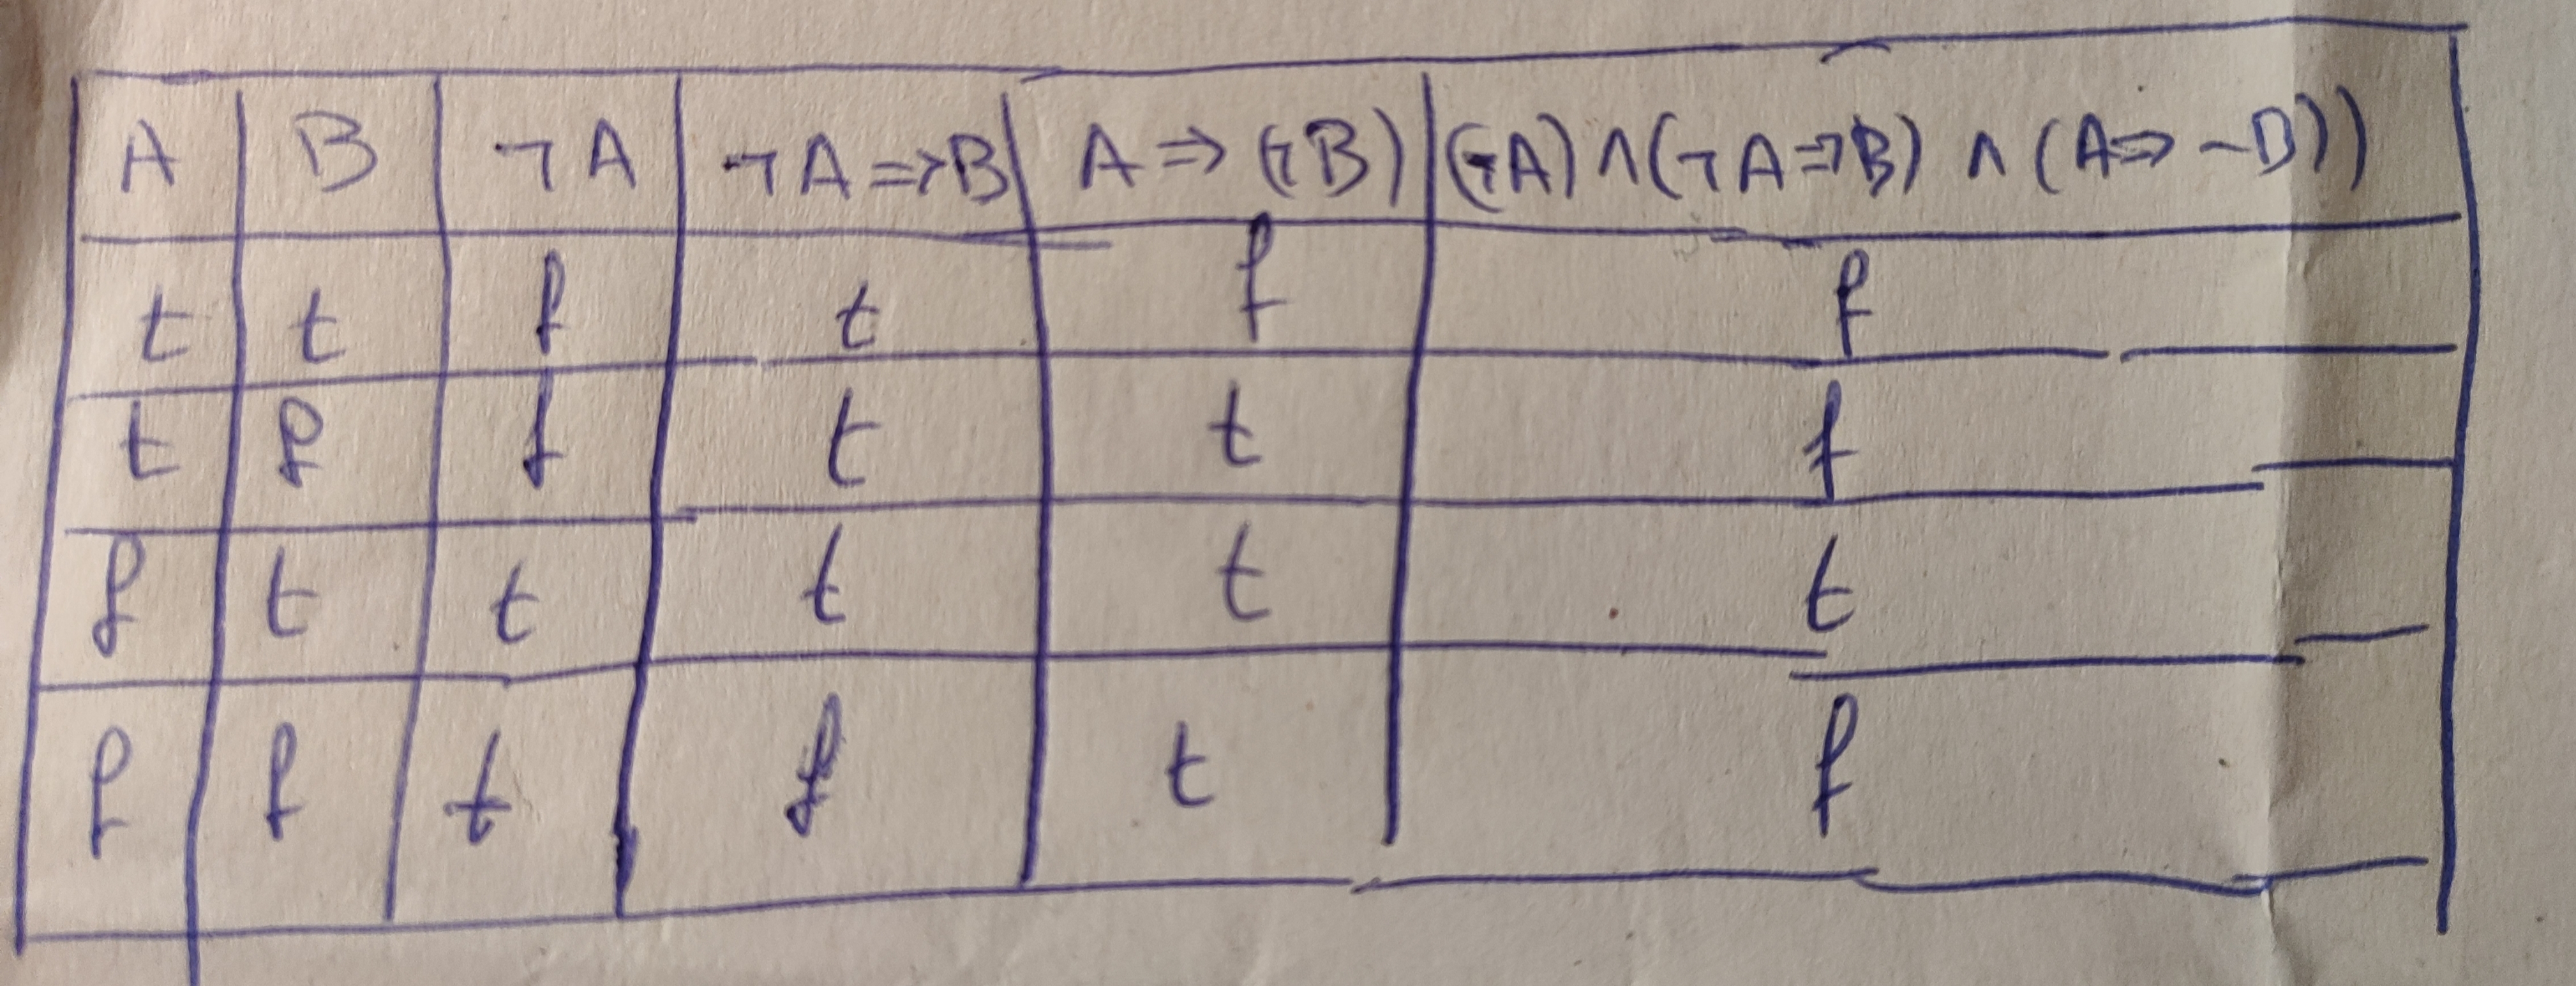 A B ¬A ¬A => B A => (¬B) (¬A) ∧ (¬A => B) ∧ (A => ¬B))
t t f t f f
t f f t t f
f t t t t t
f f t f t f